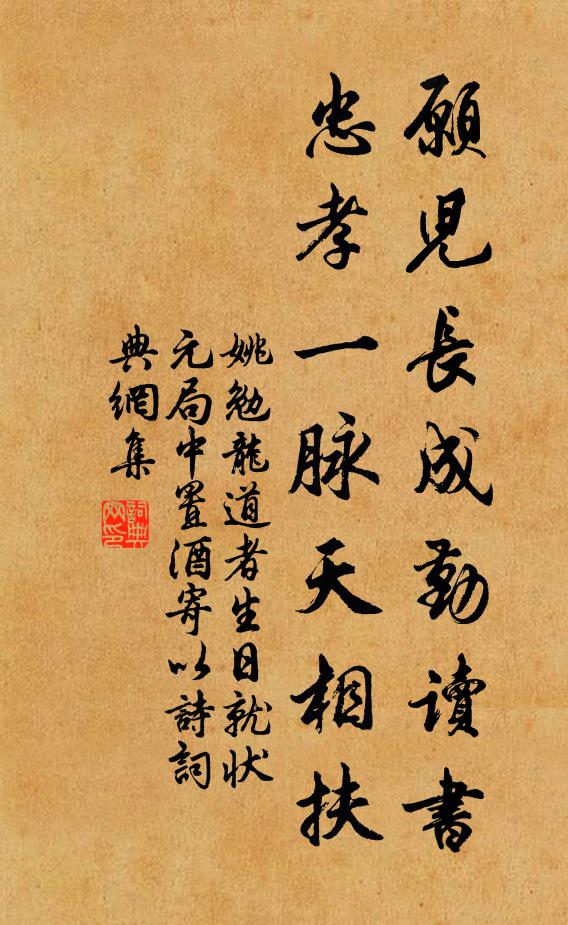 願児長成勤讀書
忠孝一脉天相扶
姚勉龍道者生日就状
元局中置酒寄以詩詞
典網集
詞典
网印